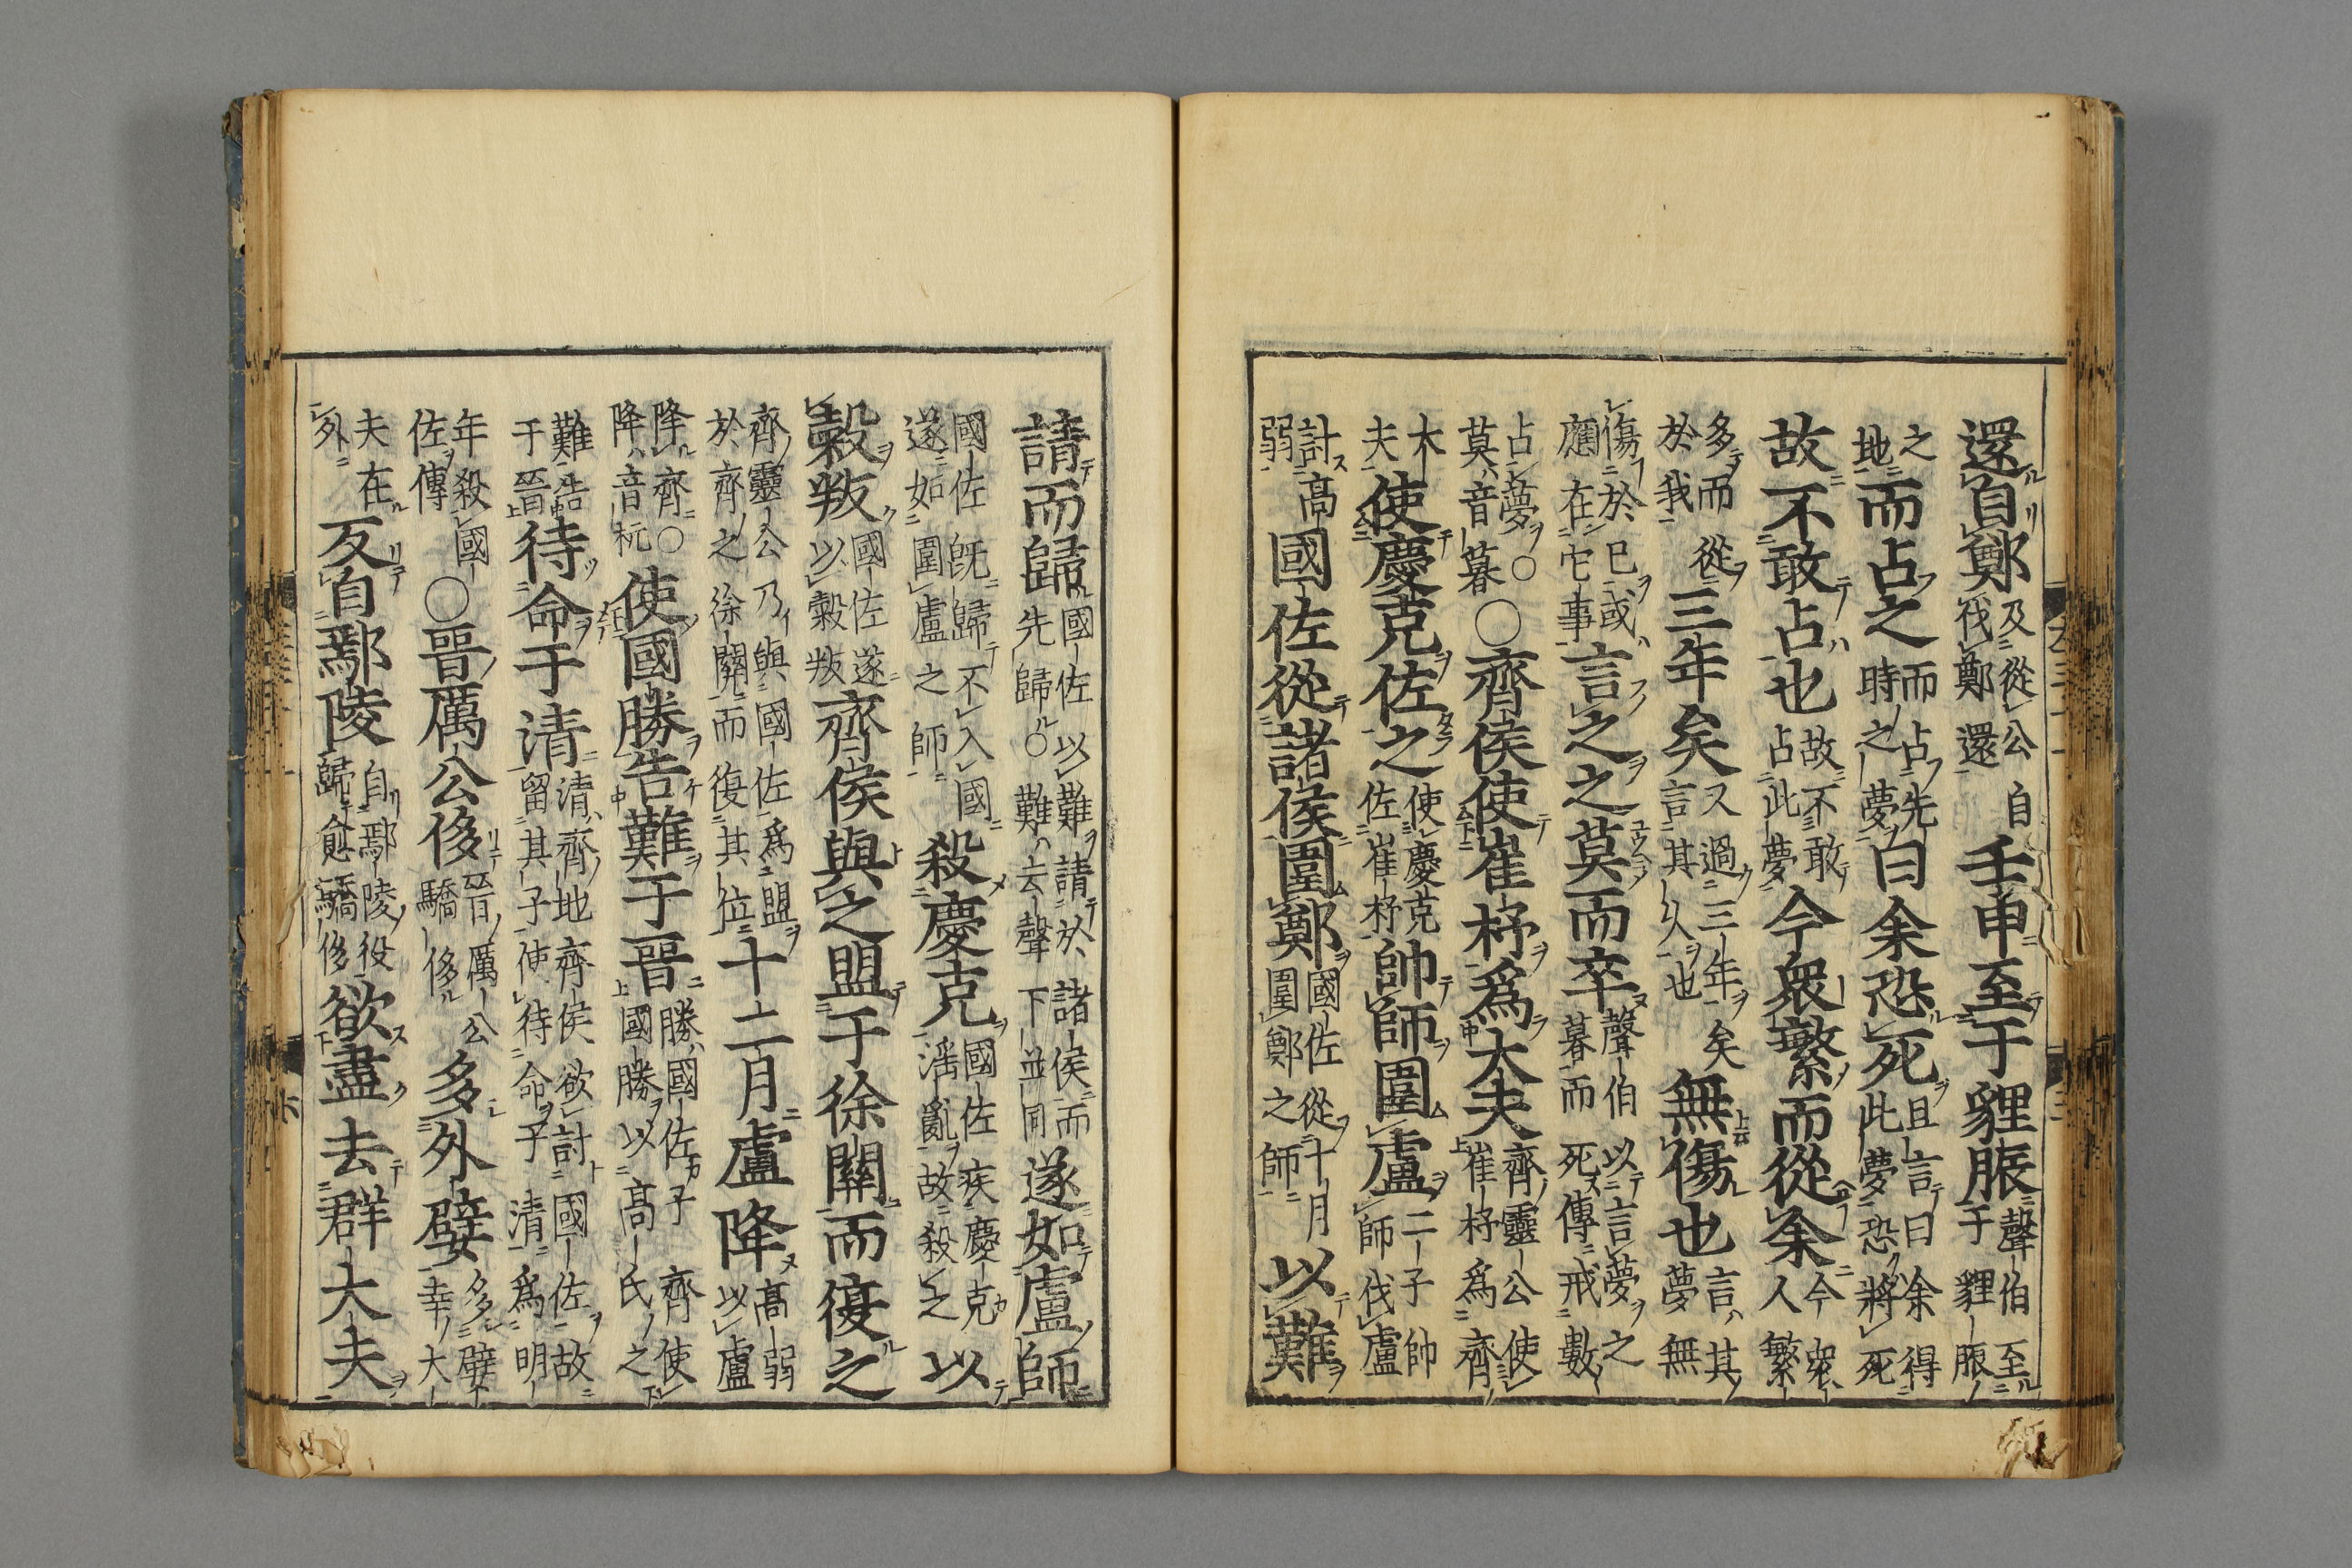 還自鄭及從公伐鄭還自壬申至于貍脤聲伯至于貍脤
之地而占之而占先時之夢曰余恐死且言曰余得此夢恐將死
故不敢占也故不敢占此夢今衆繁而從余今衆人繁
多而從於我三年矣又過三年矣言其久也無傷也言其夢無
傷於已或應在它事言之之莫而卒聲伯以言夢之暮而死傳戒數
占夢○莫音暮○齊侯使崔杼爲大夫齊靈公使崔杼爲齊
大夫使慶克佐之使慶克佐崔杼帥師圍盧二子帥師伐盧
討高弱國佐從諸侯圍鄭國佐從十月圍鄭之師以難
請而歸國佐以難請於諸侯而先歸○難去聲下並同遂如盧師
國佐旣歸不入國遂如圍盧之師殺慶克國佐疾慶克淫亂故殺之以
穀叛國佐遂以穀叛齊侯與之盟于徐關而復之
齊靈公乃與國佐爲盟於齊之徐關而復其位十二月盧降高弱以盧
降齊○降音杬使國勝告難于晉勝國佐子齊使國勝以高氏之
難告于晉待命于清清齊地齊侯欲討國佐故留其子使待命于清爲明
年殺國佐傳○晉厲公侈晉厲公驕侈多外嬖多嬖幸大
夫在外反自鄢陵自鄢陵役歸愈驕侈欲盡去群大夫